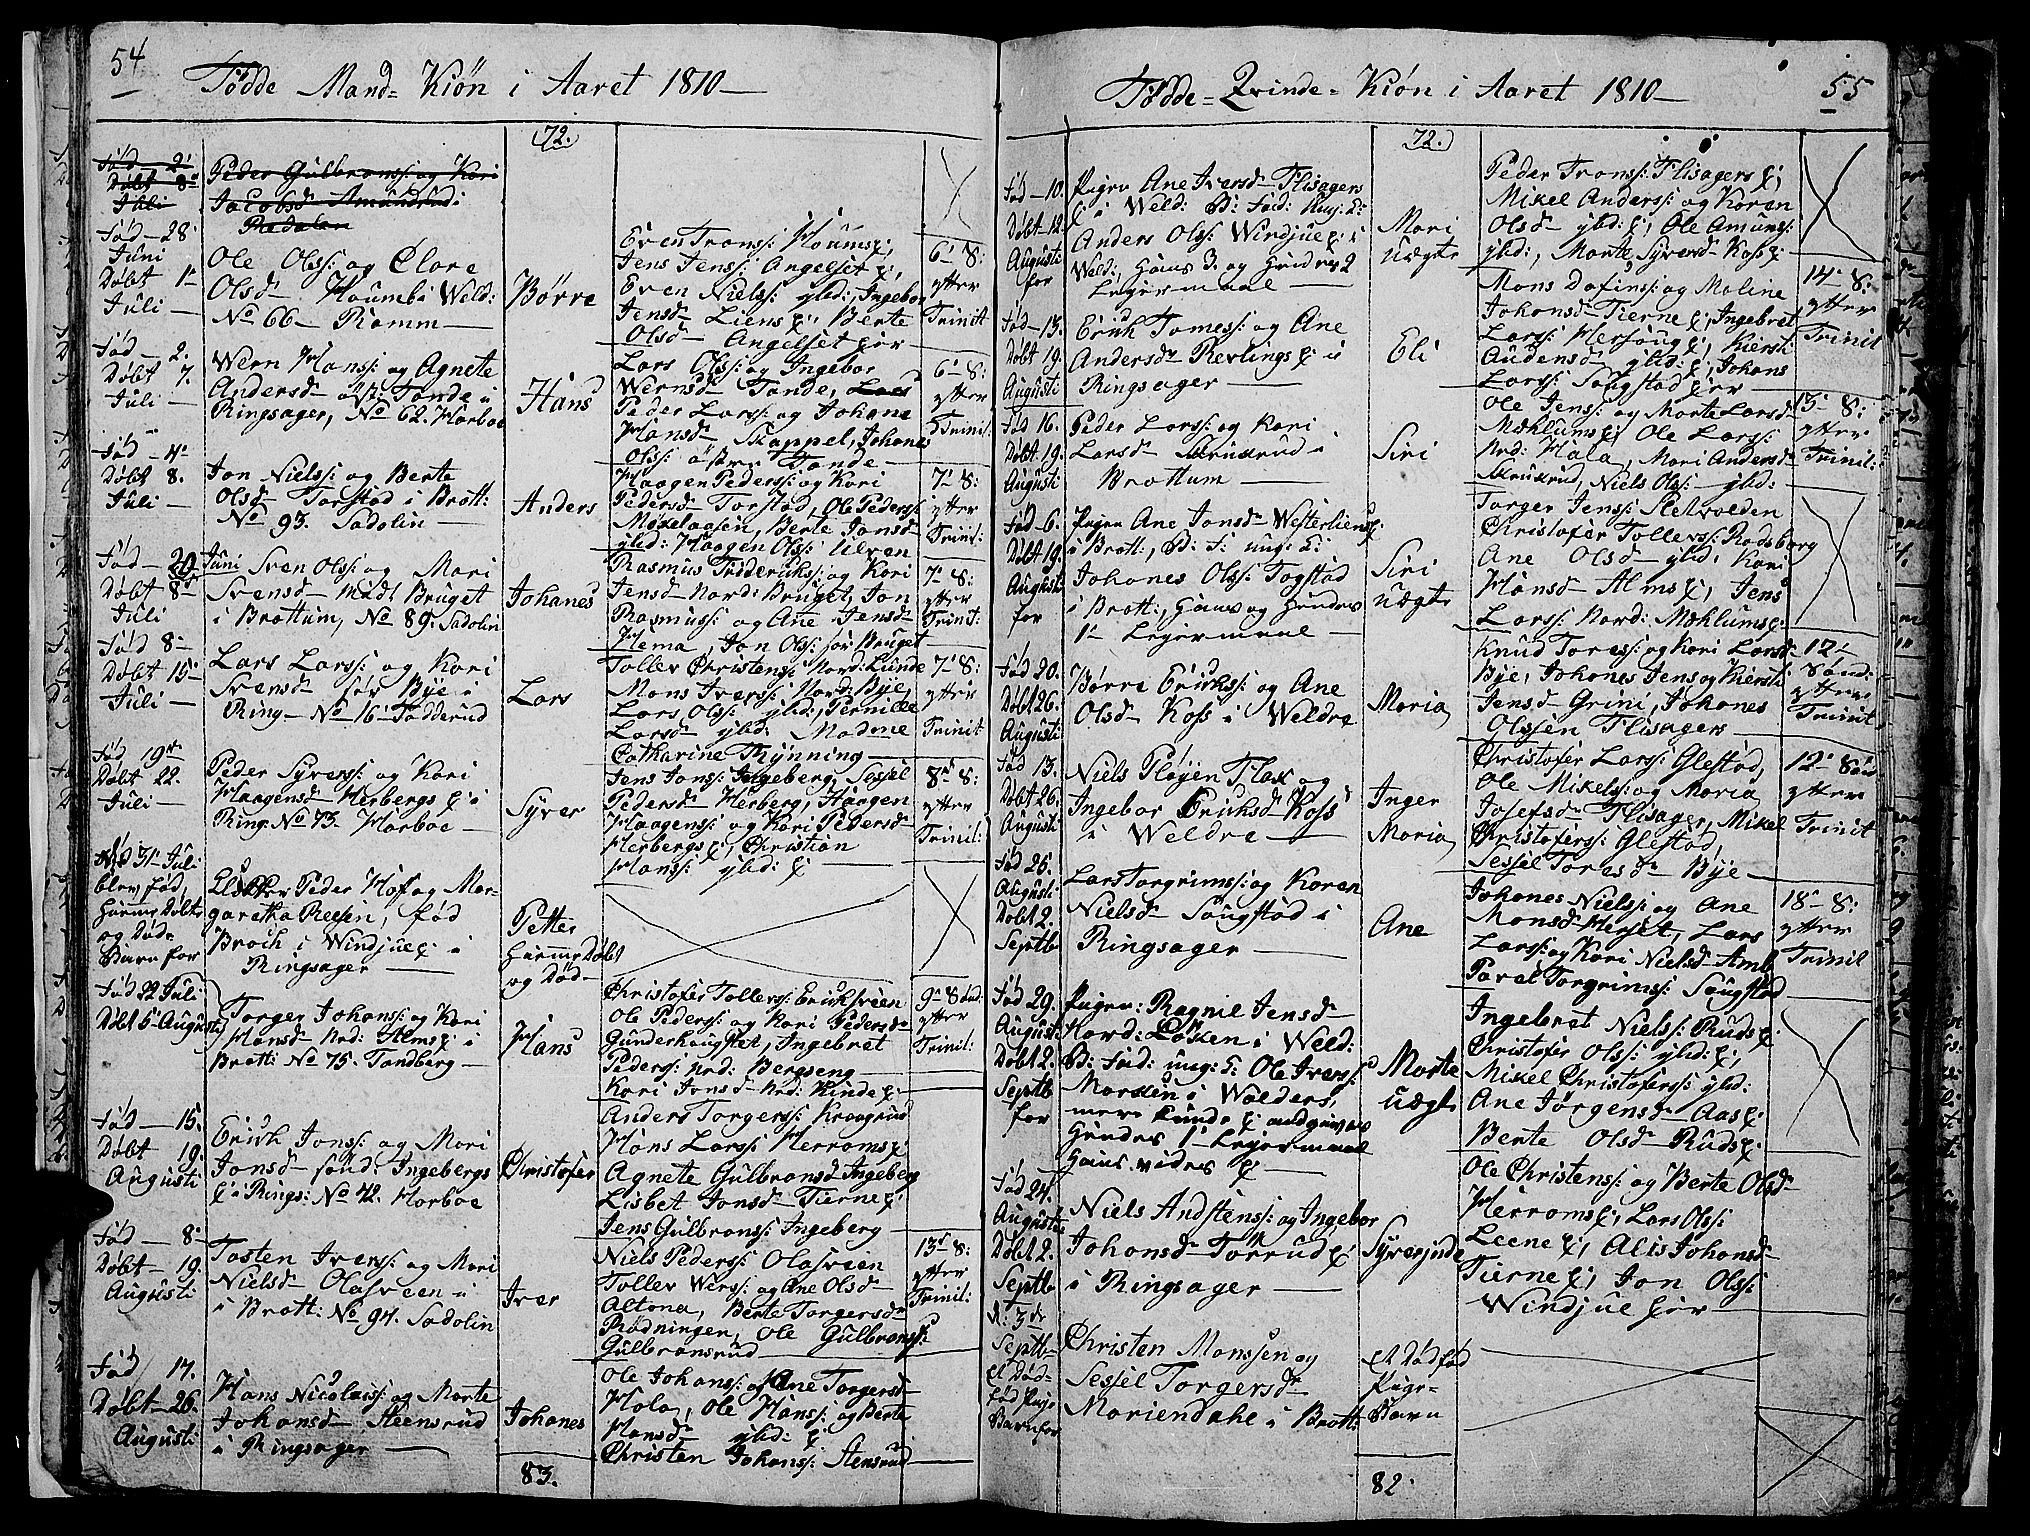 54
Födde Mand= Kiön i Aaret 1810—
72.
Fød 2'
Døbt 8de
Juli
Peder Gulbrans: og Kari
Jacobsd Amundrud i
Redalen
Fød — 28
Juni
Døbt 1
Juli —
Ole Olss: og Clare
Olsd Houmbs Weld:
No 66 — Ramm —
Börre
Even Tronss: Houms p:,
Jens Jenss: Angelset p:,
Even Nielss: yld: Ingebor
Jensd Liens p: Berte
Olsd Angelset pør —
6 — 8:
ytter
Trinit
Fød — 2.
Døbt 7.
Juli —
Wern Hanss: og Agnete
Andersd östr Tande i
Ringsager, No 62. Harboe
Hans
Lars Olss: og Ingebor
Wernsd Tande, Lars
Peder Larss: og Johane
Hansd Skappel, Johanes
Olss: östre Tande
6 — 8:
ytter
Trinit:
Fød — 4
Døbt 8.
Juli —
Jon Nielss: og Berte
Olsd Torstad i Brott:
No 93. Sadolin —
Anders
Haagen Pederss: og Kari
Pedersd Torstad, Ole Pederss:
Moxelaasen, Berte Jonsd
yld: Haagen Olss: Ulven
7 — 8:
ytter
Trinit:
Fød — 20 Juni
Døbt 8de
Juli
Sven Olss: og Mari
Svensd Midt Bruget
i Brottum, No 89: Sadolin
Johanes
Rasmus Fridderikss: og Kari
Jensd Nord: Bruget, Jon
Rasmuss: og Ane Jensd
Hema, Jon Olss: sör Bruget
7 — 8:
ytter
Trinit:
Fød 8 —
Døbt 15
Juli —
Lars Larss: og Kari
Svensd sör Bye i
Ring — No 16 — Fodderud
Lars
Toller Christens: Nord: Lunde
Mons Iverss: Nord: Bye,
Lars Olss: yld:, Pernille
Larsd yld: Madme
Catharine Thynning —
7 8:
ytter
Trinit
Fød 19de
Døbt 22.
Juli —
Peder Syverss: og Kari
Haagensd Herbergs p: i
Ring: No 73. Harboe —
Syver
Jens Jonss: Ingeberg, Sessel
Pedersd Herberg, Haagen
Haagenss: og Kari Pedersd
Herbergs p:, Christian
Hanss: yld: p:
8 8:
ytter
Trinit:
31 Juli
blev fød,
Hieme Døbt
og Død
Barn for
Peder Hof og Mar-
garetha Reesen, fød
Broch i Windjue p: i
Ringsager —
Petter
hieme Døbt
og Død —
Fød 22 Juli
Døbt 5 Augusti
Torger Johanss: og Kari
Hansd Nrd: Alms p: i
Brott: No 75. Tandberg —
Hans
Christofer Tollerss: Ericksveen
Ole Pederss: og Kari Pedersd
Gunderhaugstet, Ingebret
Pederss: Nrd: Bergseng —
Kari Jonsd Nrd: Kinde p: —
9 Sønd:
ytter
Trinit:
Fød — 15.
Døbt 19.
Augusti
Erich Jonss: og Mari
Jonsd sønd: Ingebergs
p: i Rings: No 72. Harboe
Christofer
Anders Torgerss: Kraagrud
Hans Larss: Herroms p:
Agnete Gulbransd Ingeberg
Lisbet Jonsd Tierne p:
Jens Gulbranss: Ingeberg —
Fød — 8
Døbt 19
Augusti
Tosten Iverss: og Mari
Nielsd Olasveen i
i Brott: No 94. Sadolin
Iver
Niels Pederss: Olasveen
Toller Werss: og Ane Olsd
Altona, Berte Torgersd
Rodningen, Ole Gulbranss:
Gulbransrud —
13 8:
ytter
Trinit:
Fød 17.
Døbt 26.
Augusti
Hans Nicolaiss: og Marte
Johansd Steensrud
i Ringsager —
Johanes
Ole Johanss: og Ane Torgersd
Hola, Ole Hanss: og Berte
Hansd yld: p:
Christen Johanss: Stensrud —
83.
55
Födde= Qvinde= Kiön i Aaret 1810—
72.
Fød — 10.
Døbt 12.
Augusti
for
Pigen Ane Iversd Flisagers
p: i Weld: B: Fad: Ung: K:
Anders Olss: Windjue p: i
Weld:, Hans 3. og Hendes 2
Leyermaal —
Mari
uægte
Peder Tronss: Flisagers p:,
Mikel Anderss: og Karen
Olsd yld: p:, Ole Amunss:
yld:, Marte Syversd Koss p:
Fød — 13.
Døbt 19.
Augusti
Erich Tomess: og Ane
Andersd Revlings p: i
Ringsager —
Eli
Mons Dafinss: og Maline
Johansd Tierne p:, Ingebret
Larss: Hersoug p:, Kiersti
Audensd yld: p:, Johans
Larss: Saugstad pør —
14 8:
ytter
Trinit
Fød 16.
Døbt 19.
Augusti
Peder Larss: og Kari
Larsd Skruxrud i
Brottum —
Siri
Ole Jenss: og Marte Larsd
Mæhlums p:, Ole Larss:
Nrd: Hala, Mari Andersd
Skruxrud, Niels Olss: yld:
13 8:
ytter
Trinit:
Fød 6.
Døbt 19.
Augusti
for
Pigen Ane Jonsd Westerliens p:
i Brott:, B: F: ung: K:
Johanes Olss: Fogstad
i Brott:, Hans og Hendes
1 Leyermaal —
Siri
uægte
Torger Jenss: Sletvolden
Christofer Tollerss: Rodsborg
Ane Olsd yld: Kari
Hansd Alms p:, Jens
Larss: Nord: Mæhlums p:
Fød 20.
Døbt 26.
Augusti
Börre Erickss: og Ane
Olsd Koss i Weldre
Maria
Knud Toress: og Kari Larsd
Bye, Johanes Jens og Kiersti
Jensd Grini, Johanes
Olssen Flisagers —
12 —
Sönd:
ytter
Trinit
Fød 13.
Døbt 26.
Augusti
Niels Pløyen Flax og
Ingebor Ericksd Koss
i Weldre —
Inger
Maria
Christofer Larss: Glestad,
Ole Mikelss: og Maria
Josefsd Flisager, Mikel
Christoferss: Glestad,
Sessel Toresd Bye —
12 Sön
ytter
Trinit
Fød 25.
Augusti
Døbt 2.
Septb
Lars Torgrimss: og Karen
Nielsd Saugstad i
Ringsager —
Ane
Johanes Nielss: og Ane
Monsd Herset, Lars
Larss: og Kari Nielsd Amb
Paral Torgrimss: Saugstad —
18 8:
ytter
Trinit
Fød 29.
Augusti
Døbt 2.
Septb
for
Pigen: Ragnil Jensd
Nord: Löken i Weld:
B: Fad: ung: K: Ole Iverss:
Morken i Walders,
men Lunde p: andgives
Hendes 1 Leyermaal
Hans vides p: —
Marte
uægte
Ingebret Nielss: Ruds p:
Christofer Olss: yld: p:,
Mikel Christoferss: yld:
Ane Jørgensd Aas p:
Berte Olsd Ruds p:
Fød 24.
Augusti
Døbt 2.
Septb
Niels Andstenss: og Ingebor
Johansd Törrud p:
i Ringsager —
Syverjnde
Ole Christenss: og Berte Olsd
Herroms p:, Lars Olss:
Leene p:, Alis Johansd
Tierne p:, Jon Olss:
Windjue pør —
d: 3de
Septb
et Død-
fød Pige
Barn for
Christen Monssen og
Sessel Torgersd
Mariendahl i Brott:
et Dødfød
Pige-
Barn
82.